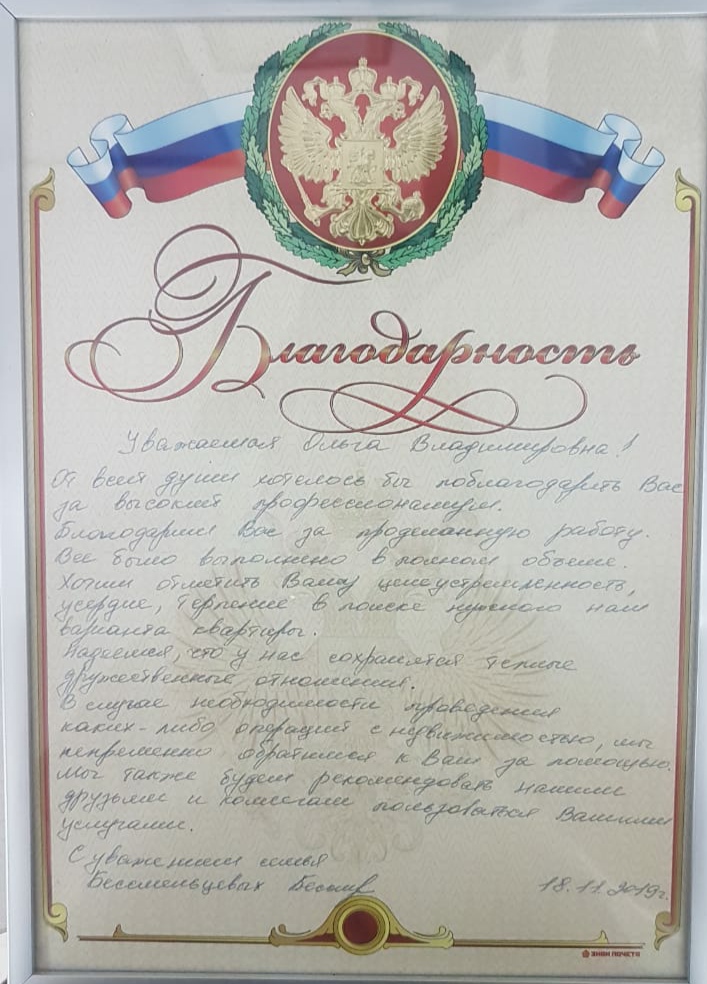 Благодарность
Уважаемая Ольга Владимировна!
От всей души хотелось бы поблагодарить Вас
за высокий профессионализм.
Благодарим Вас за проделанную работу.
Все было выполнено в полном объеме.
Хотим отметить Вашу целеустремленность,
усердие, терпение в поиске нужного нам
варианта квартиры.
Надеемся, что у нас сохранятся теплые
дружественные отношения.
В случае необходимости проведения
каких-либо операций с недвижимостью, мы
непременно обратимся к Вам за помощью.
Мы также будем рекомендовать нашим
друзьям и коллегам пользоваться Вашими
услугами.
С уважением семья
Бессменьцевых
18.11.2019г.
ЗНАК ПОЧЕТА